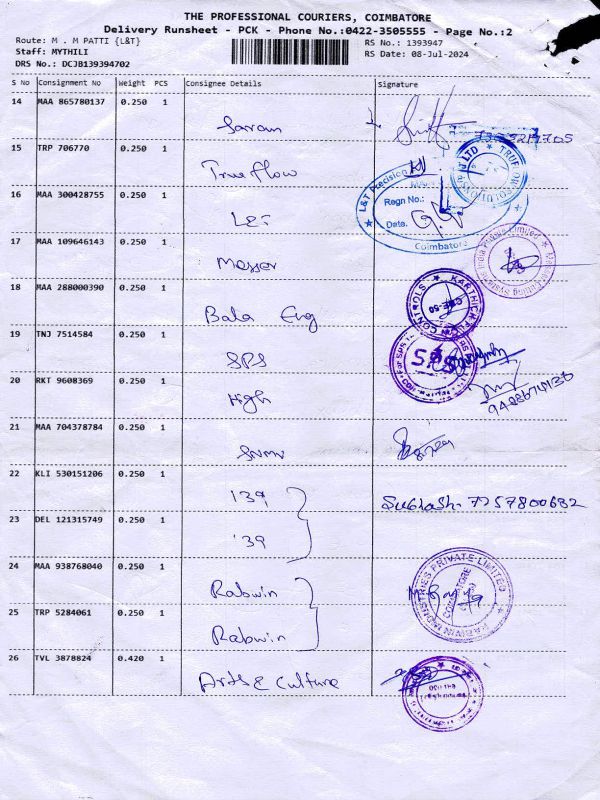 THE PROFESSIONAL COURIERS, COIMBATORE
Delivery Runsheet - PCK - Phone No.:0422-3505555 - Page No.:2
Route: M . M PATTI {L&T}
RS No.: 1393947
Staff: MYTHILI
RS Date: 08-Jul-2024
DRS No.: DCJB139394702
S No Consignment No Weight PCS Consignee Details Signature
14 MAA 865780137 0.250 1
15 TRP 706770 0.250 1
True flow
16 MAA 300428755 0.250 1
L&T
17 MAA 109646143 0.250 1
Messer
18 MAA 288000390 0.250 1
Bala Eng
19 TNJ 7514584 0.250 1
SPS
20 RKT 9608369 0.250 1
High
21 MAA 704378784 0.250 1
22 KLI 530151206 0.250 1
139
Subash. 7257800682
23 DEL 121315749 0.250 1
139
24 MAA 938768040 0.250 1
Rabwin
25 TRP 5284061 0.250 1
Rabwin
26 TVL 3878824 0.420 1
Arts & Culture
L&T Precision
Regn No.:
Date.
Coimbatore
SPS
RABWIN INDUSTRIES PRIVATE LIMITED
COIMBATORE